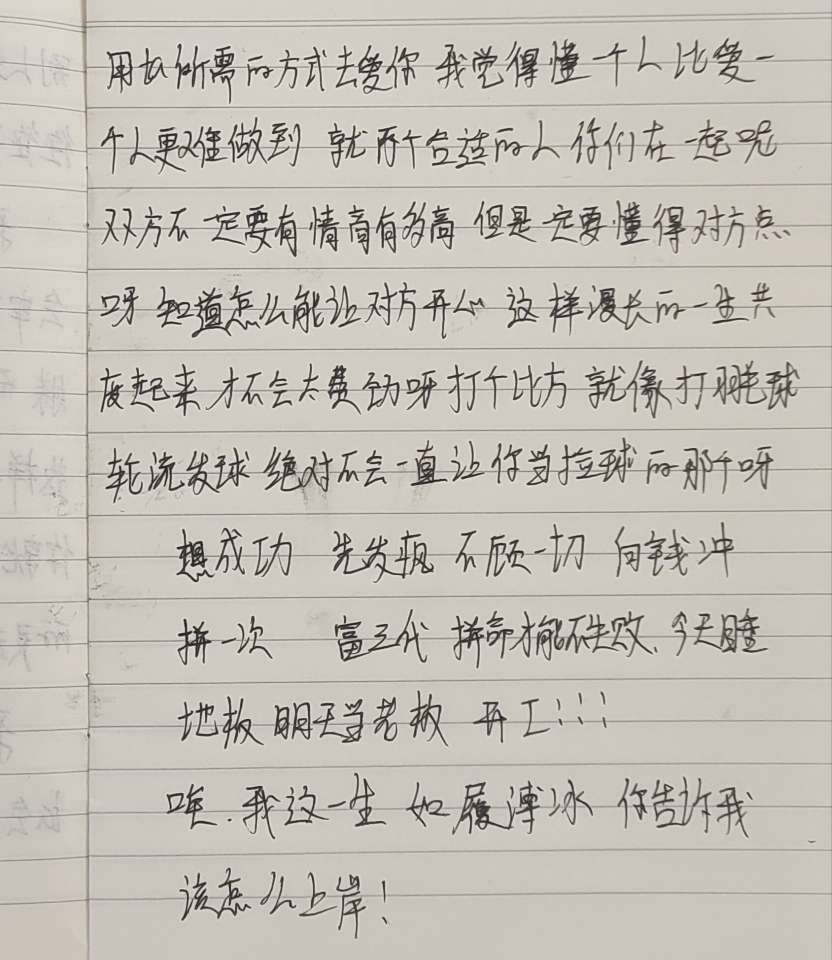 用你所需的方式去爱你 我觉得懂一个人比爱一
个人更难做到 就两个合适的人 你们在一起呢
双方不一定要有情商有多高 但是一定要懂得对方点
呀 知道怎么能让对方开心 这样漫长的一生共
度起来 才不会太费劲呀 打个比方 就像打羽毛球
轮流发球 绝对不会一直让你当捡球的那个呀
想成功 先发疯 不顾一切 向钱冲
拼一次 富三代 拼命才能不失败. 今天睡
地板 明天当老板 开工!!!
唉. 我这一生 如履薄冰 你告诉我
该怎么上岸!